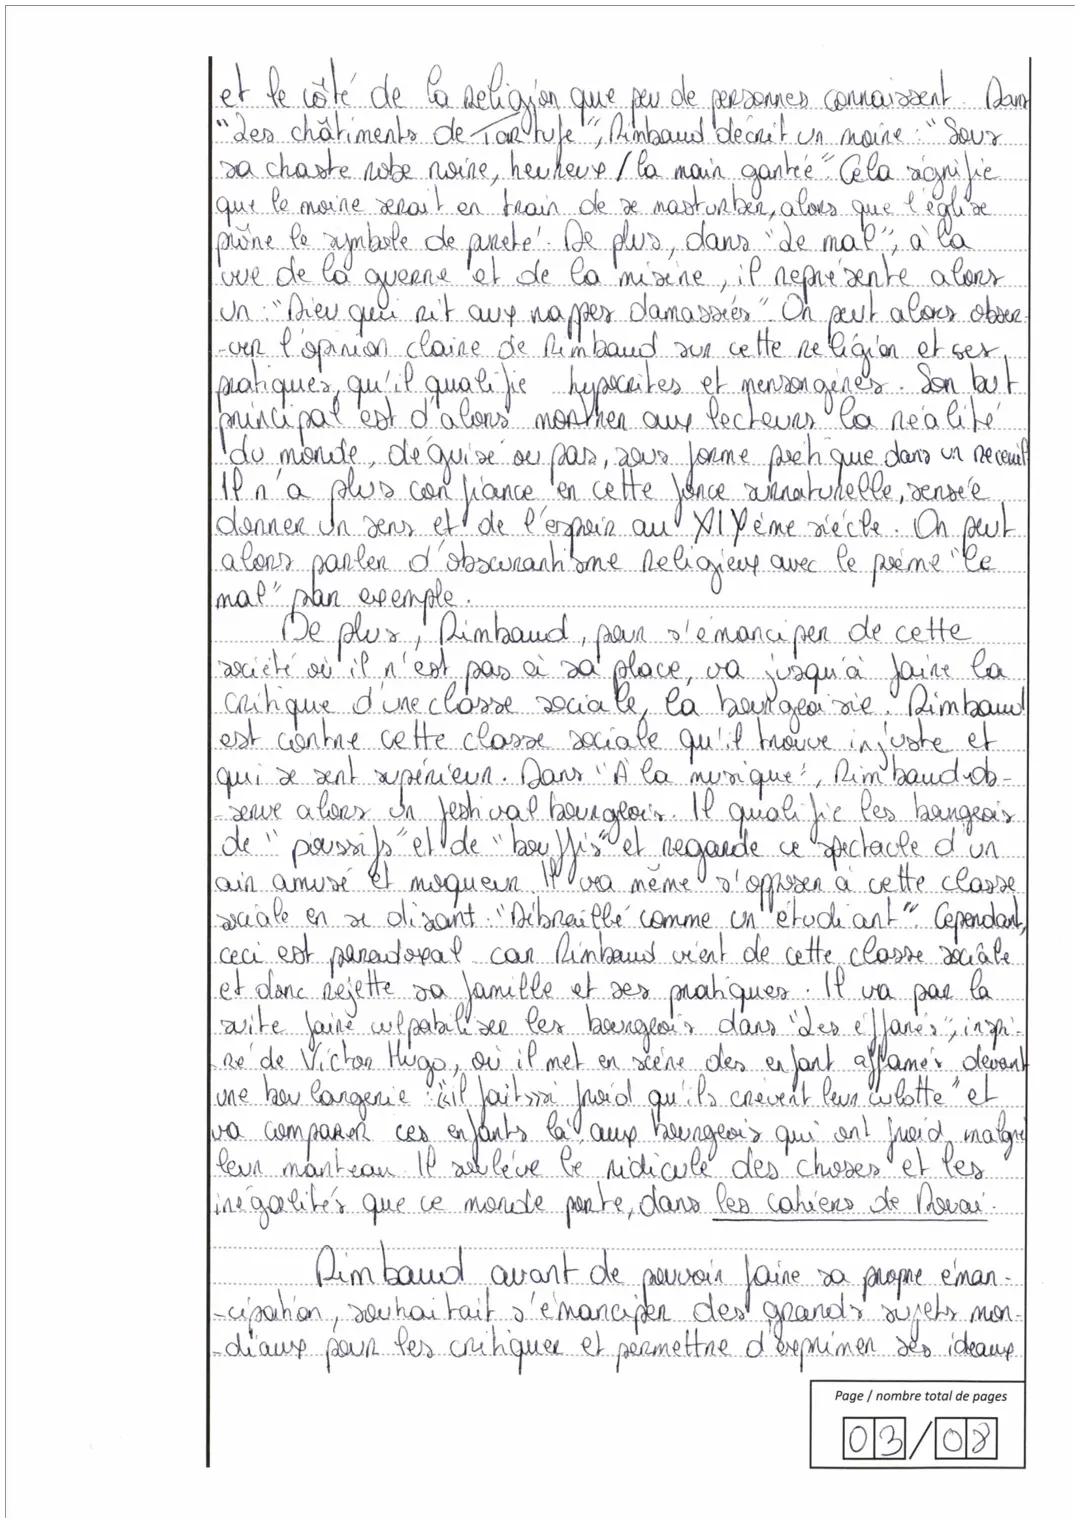 et le côté de la religion que peu de personnes connaissent. Dans
"Les châtiments de Tartuffe", Rimbaud décrit un moine : "Sous
sa chaste robe noire, heureux / la main gantée". Cela signifie
que le moine serait en train de se masturber, alors que l'église
prône le symbole de pureté. De plus, dans "Le mal", à la
vue de la guerre et de la misère, il représente alors
un : "Dieu qui rit aux nappes damassées". On peut alors obser-
-ver l'opinion claire de Rimbaud sur cette religion et ses
pratiques, qu'il qualifie hypocrites et mensongères. Son but
principal est d'alors montrer aux lecteurs la réalité
du monde, déguisé ou pas, sous forme poétique dans un receuil
Il n'a plus confiance en cette force surnaturelle, sensée
donner un sens et de l'espoir au XIXème siècle. On peut
alors parler d'obscurantisme Religieux avec le poème "le
mal" par exemple.
De plus, Rimbaud, pour s'émanciper de cette
société où il n'est pas à sa place, va jusqu'à faire la
critique d'une classe sociale, la bourgeoisie. Rimbaud
est contre cette classe sociale qu'il trouve injuste et
qui se sent supérieur. Dans "A la musique", Rimbaud ob-
-serve alors un festival bourgeois. Il qualifie les bourgeois
de "poussifs" et de "bouffis" et regarde ce spectacle d'un
air amusé et moqueur. Il va même s'opposer à cette classe
sociale en se disant : "Débraillé comme un étudiant". Cependant,
ceci est paradoxal car Rimbaud vient de cette classe sociale
et donc rejette sa famille et ses pratiques. Il va par la
suite faire culpabiliser les bourgeois dans "Les éffarés", inspi-
-ré de Victor Hugo, où il met en scène des enfant affamés devant
une boulangerie : "il fait si froid qu'ils crèvent leur culotte" et
va comparer ces enfants là, aux bourgeois qui ont froid malgré
leur manteau. Il soulève le ridicule des choses et les
inégalités que ce monde porte, dans les cahiers de Douai.
Rimbaud avant de pouvoir faire sa propre éman-
-cipation, souhaitait s'émanciper des grands sujets mon-
-diaux pour les critiquer et permettre d'exprimer ses idéaux
Page / nombre total de pages
03/08